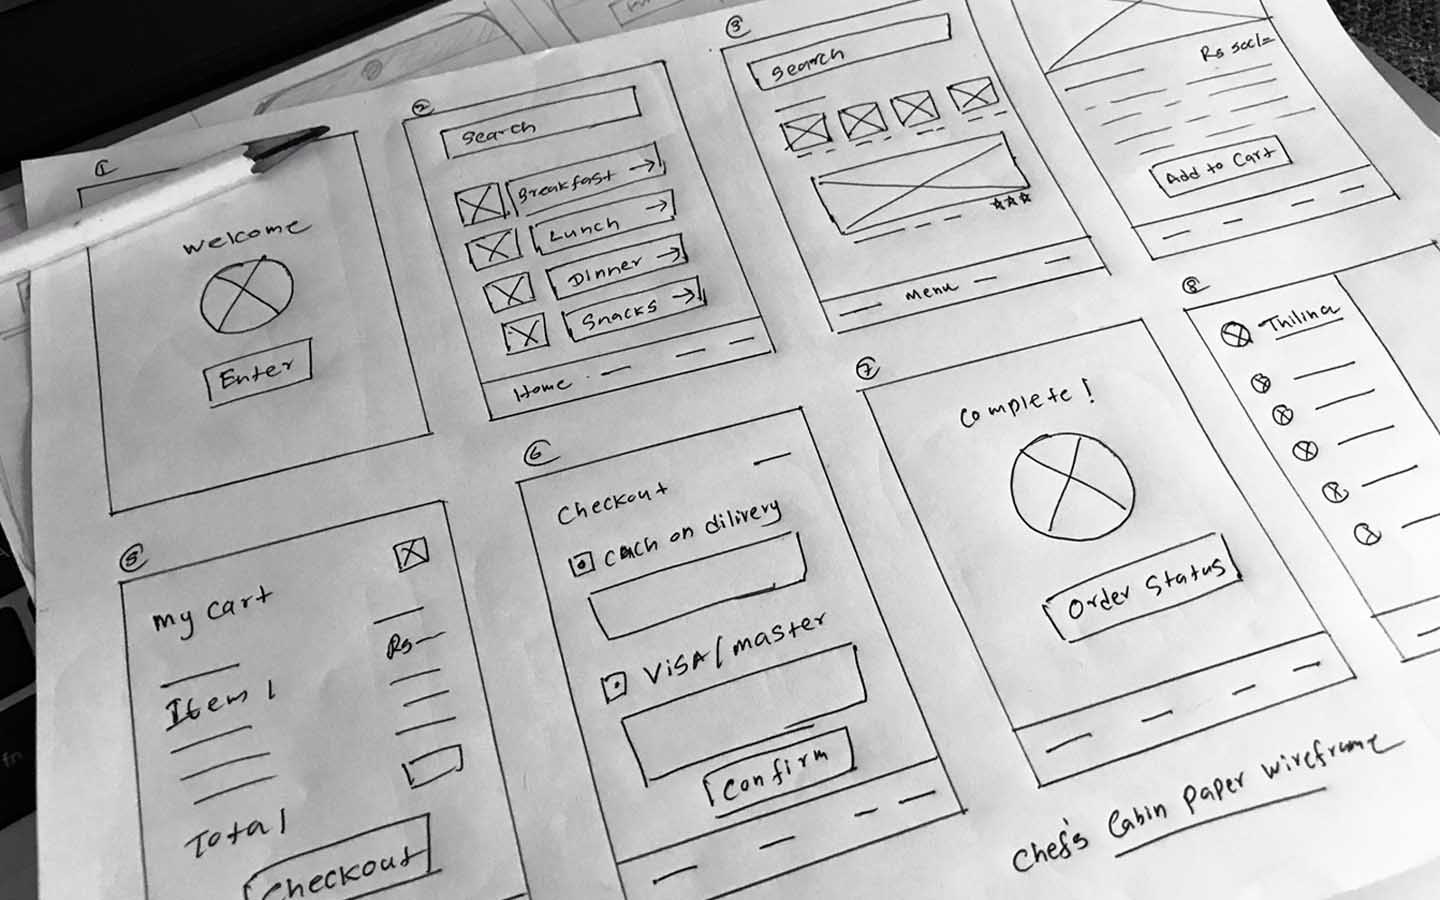 1
Welcome
Enter
2
Search
Breakfast →
Lunch →
Dinner →
Snacks →
Home
3
Search
★★★
Menu
Add to Cart
5
My Cart
Rs
Item 1
Total
Checkout
6
Checkout
Cach on dilivery
VISA/master
Confirm
7
Complete!
Order Status
8
Thilina
Chef's Cabin Paper Wireframe
fn